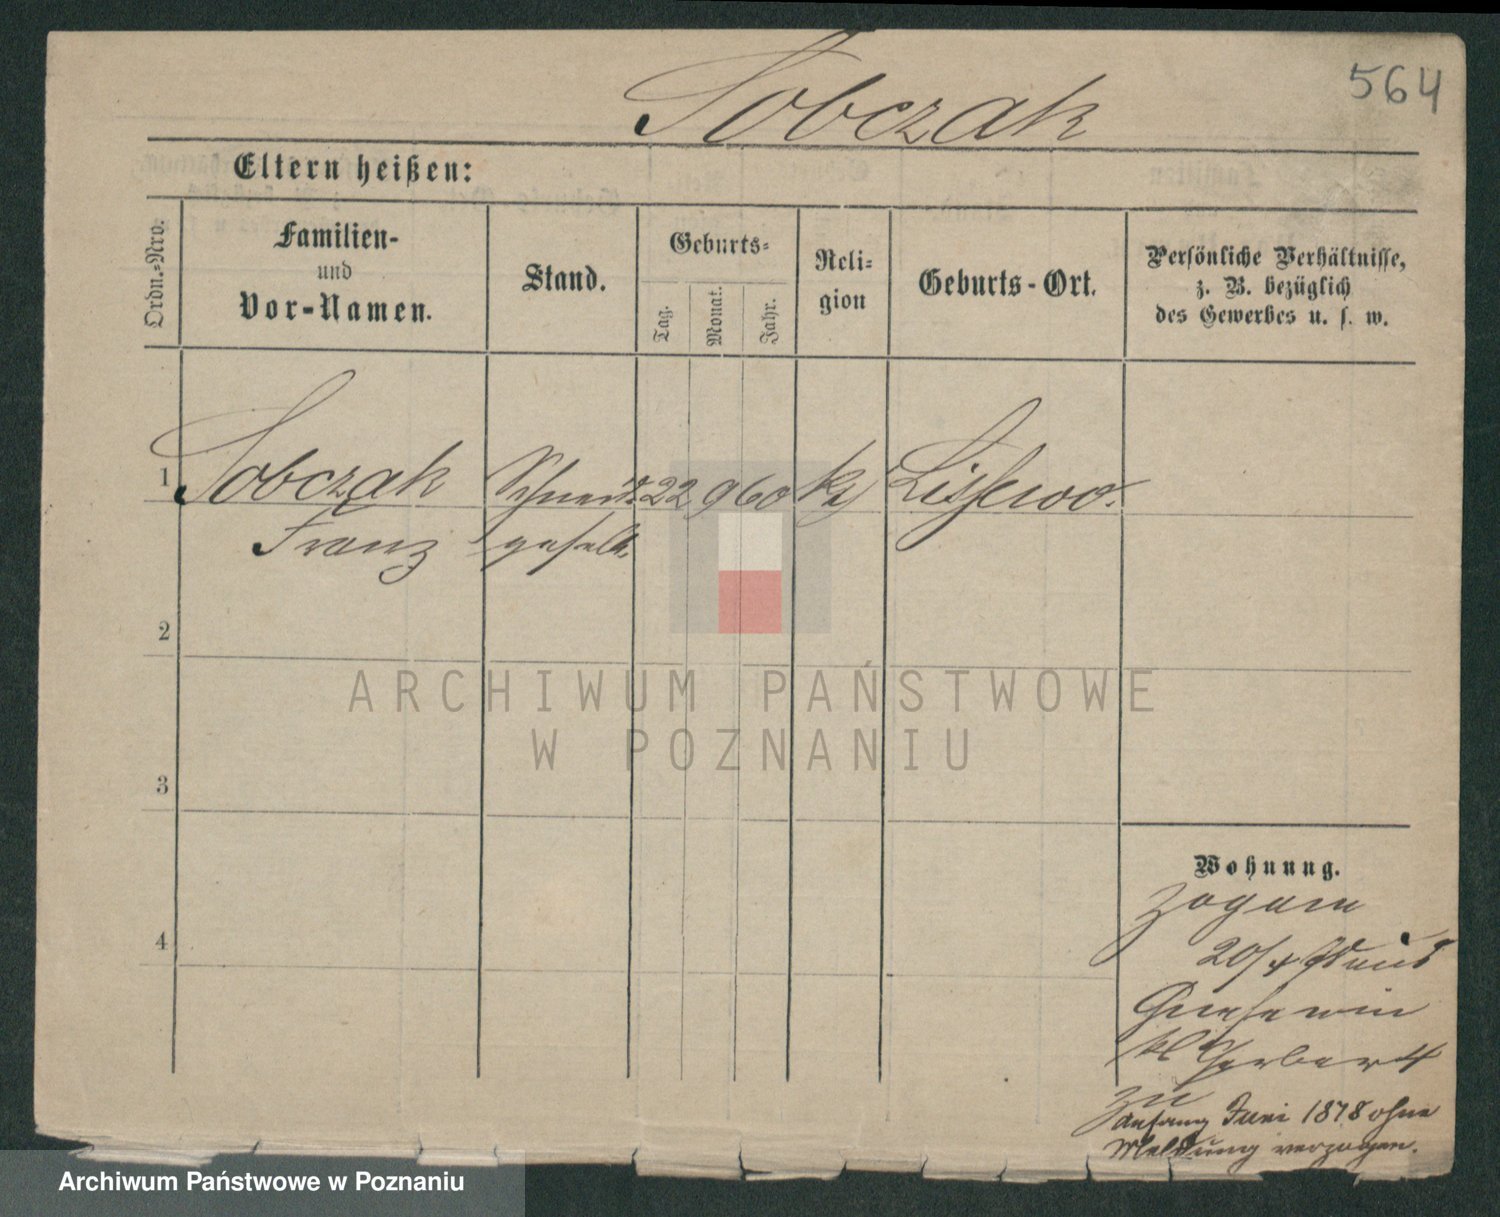 564
Sobczak
Eltern heißen:
Ordn.=Nro.
Familien-
und
Vor-Namen.
Stand.
Geburts=
Tag.
Monat.
Jahr.
Reli=
gion
Geburts-Ort.
Persönliche Verhältnisse,
z. B. bezüglich
des Gewerbes u. s. w.
1
Sobczak
Schneid.
22
9
60
Lissewo.
Franz
gesell.
2
ARCHIWUM PAŃSTWOWE
W POZNANIU
3
Wohnung.
zogen
20/4
4
Gnesen
kl Gerber 4
zu
Anfang Juni 1878 ohne
Meldung verzogen.
Archiwum Państwowe w Poznaniu